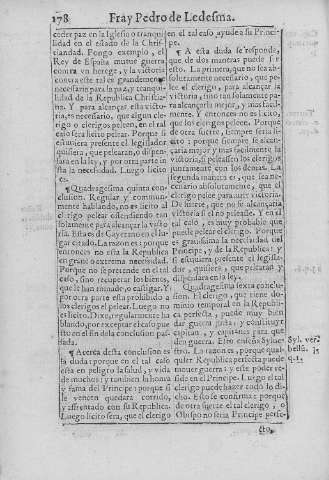 178
Fray Pedro de Ledesma.
ceder paz en la Iglesia o tranqui
lidad en el estado de la Chris-
tiandad. Pongo exemplo, el
Rey de España mueue guerra
contra vn herege, y la victoria
contra este tal es grandemente
necessario para la paz, y tranqui-
lidad de la Republica Christia-
na. Y para alcançar esta victo
ria, es necessario, que algun cleri-
go o clerigos peleen, en el tal
caso sera licito pelear. Porque si
estuuiera presente el legislador
quisiera, que pelearan, o dispen-
sara en la ley, y por otra parte in
sta la necessidad. Luego licito
es.
¶ Quadragesima quinta con
clusion. Regular y commun-
mente hablando, no es licito al
clerigo pelear offendiendo tan
solamente para alcançar la victo
ria. Esta es de Cayetano en el lu-
gar citado. La razon es: porque
entonces no esta la Republica
en graue o extrema necessidad.
Porque no se pretende en el tal
caso, sino recuperar los bienes,
que le han tomado, o castigar. Y
por otra parte esta prohibido a
los clerigos el pelear. Luego no
es licito. Dixe, regularmente ha
blando, por exceptar el caso pue
sto en el fin de la conclusion pas
sada.
¶ Acerca desta conclusion es
la duda: porque en el tal caso
esta en peligro la salud, y vida
de muchos: y tambien la honra
y fama del Principe: porque si
le vencen quedara corrido,
y affrentado con su Republica.
Luego licito sera, que el clerigo
en el tal caso ayude a su Princi-
pe.
¶ A esta duda se responde,
que de dos maneras puede ser
esto. La primera, que no sea ab-
solutamente necessario, que pe-
lee, el clerigo para alcançar la
victoria, sino tan solamente pa-
ra alcançarla mejor, y mas facil-
mente. Y entonces no es licito,
que los clerigos peleen. Porque
de otra suerte, siempre seria li-
cito: porque siempre se alcan-
çaria mejor y mas facilmente la
victoria, si peleassen los clerigos
juntamente con los demas. La
segunda manera es, que sea ne-
cessario absolutamente, que el
clerigo pelee para auer victoria.
De suerte, que no se alcançaria
victoria si el no pelease. Y en el tal
caso, es muy probable que
puede licitamente pelear. Porque
es grauissima la necessidad del
Principe, y de la Republica: y
si estuuiera presente el legisla-
dor, quisiera, que pelearan y
dispensara en la ley.
¶ Quadragesima sexta conclu
sion. El clerigo, que tiene do-
minio temporal en la Republi-
ca perfecta, puede muy bien
dar guerra justa, y constituyr
capitan, y capitanes para que
den guerra. Esto enseña Sylue-
stro. La razon es, porque qual-
quier Republica perfecta puede
mouer guerra: y este poder resi-
de en el Principe. Luego el tal
clerigo puede hazer todo lo di-
cho. Esto se confirma: porque
de otra suerte el tal clerigo, o
Obispo no seria Principe perfe-
cto,
Syl. ver.
bellũ.
q. 1.